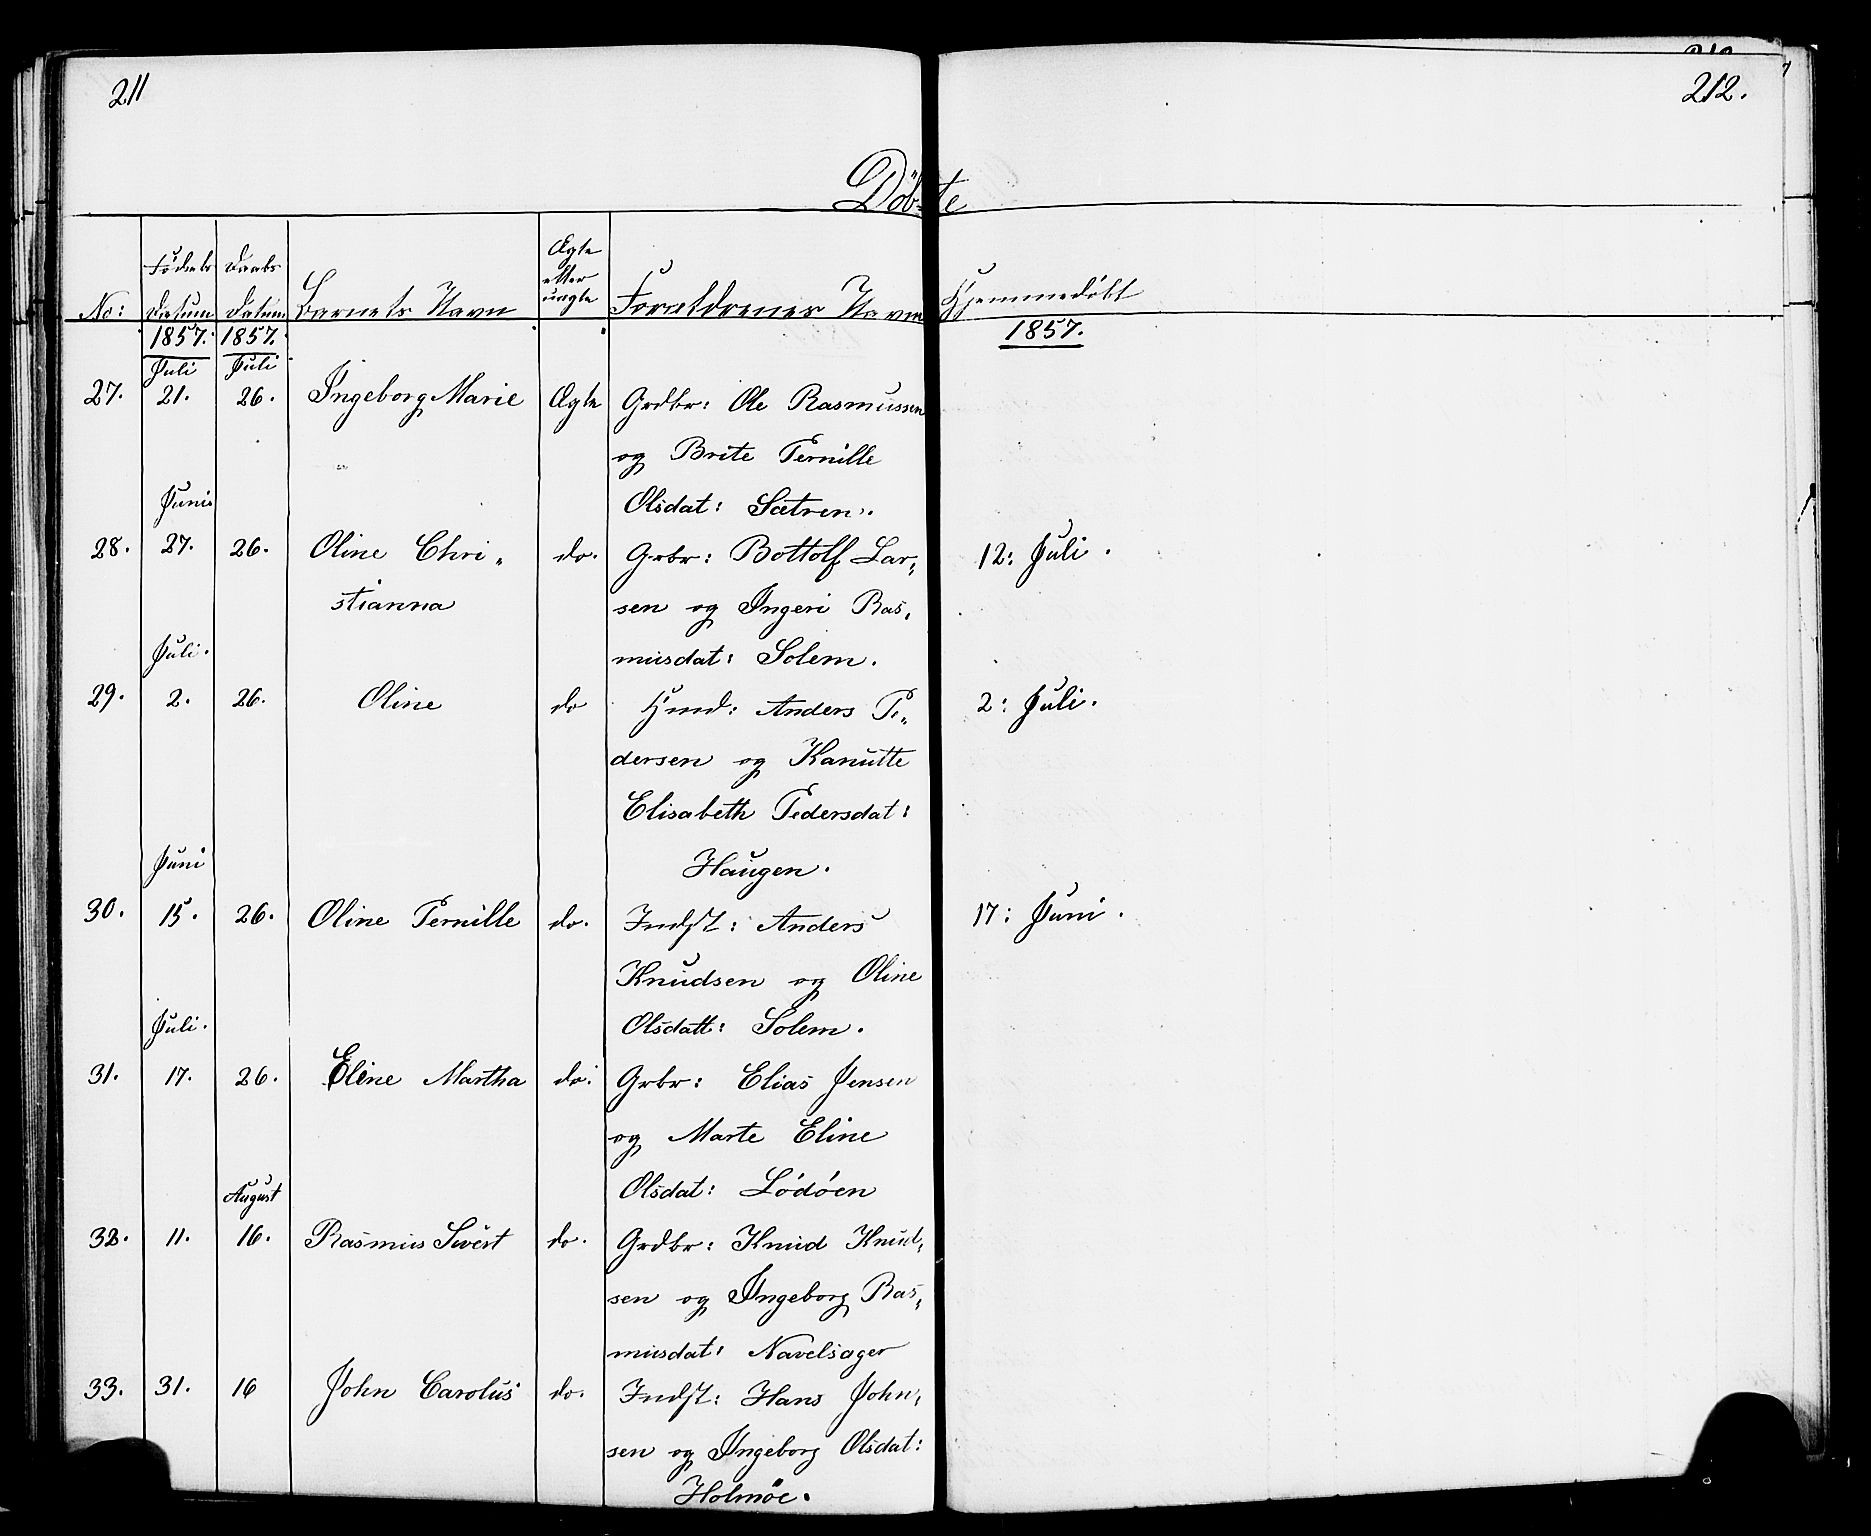 211
212.
Döbte
No:
Födsels Datum
Daabs Datum
Barnets Navn
Ægte eller uægte
Forældrenes Navn
Hjemmedöbt
1857. 1857. 1857.
Juli Juli
27. 21. 26. Ingeborg Marie Ægte Grdbr: Ole Rasmussen
og Brite Pernille
Olsdat: Sætren.
Juni
28. 27. 26. Oline Chri- do. Grbr: Bottolf Lar- 12: Juli.
stianna sen og Ingeri Ras-
musdat: Solem.
Juli.
29. 2. 26. Oline do Hmd: Anders Pe- 2: Juli.
dersen og Kanutte
Elisabeth Pedersdat:
Haugen.
Juni
30. 15. 26. Oline Pernille do. Indst: Anders 17: Juni.
Knudsen og Oline
Olsdatt: Solem.
Juli.
31. 17. 26. Eline Martha do. Grbr: Elias Jensen
og Marte Eline
Olsdat: Lödöen
August
32. 11. 16. Rasmus Sivert do. Grdbr: Knud Knud-
sen og Ingeborg Ras-
musdat: Navelsager
33. 31. 16 John Carolus do. Indst: Hans John-
sen og Ingeborg Olsdat:
Holmöe.